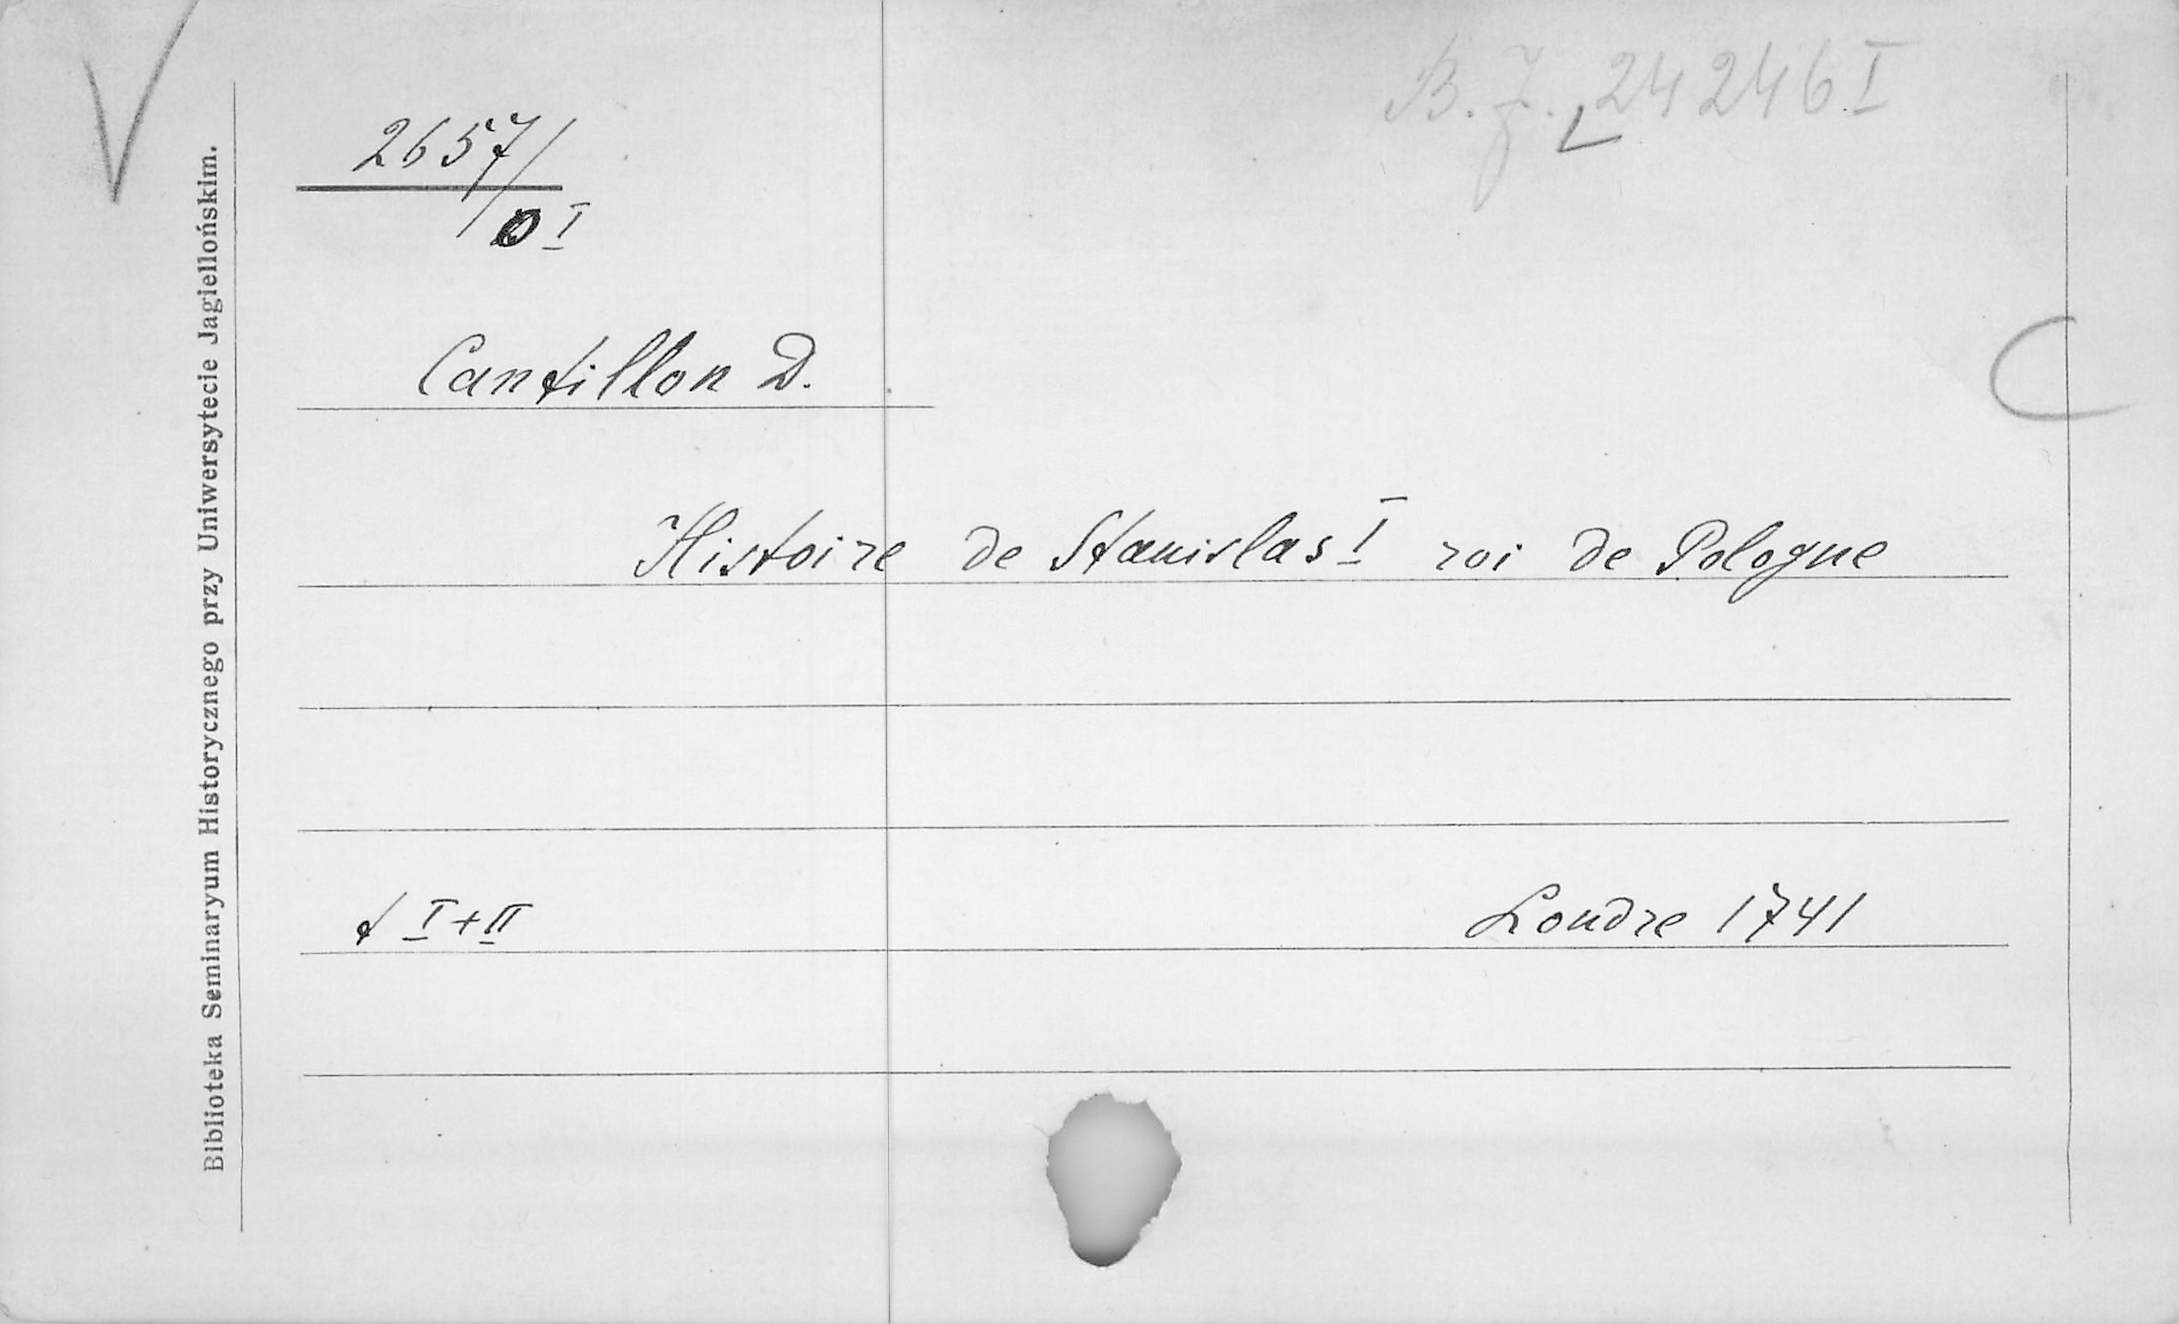 B. J. 24246 I
2657/
O I
Cantillon D.
Histoire de Stanislas I roi de Pologne
t I + II
Londre 1741
Biblioteka Seminaryum Historycznego przy Uniwersytecie Jagiellońskim.